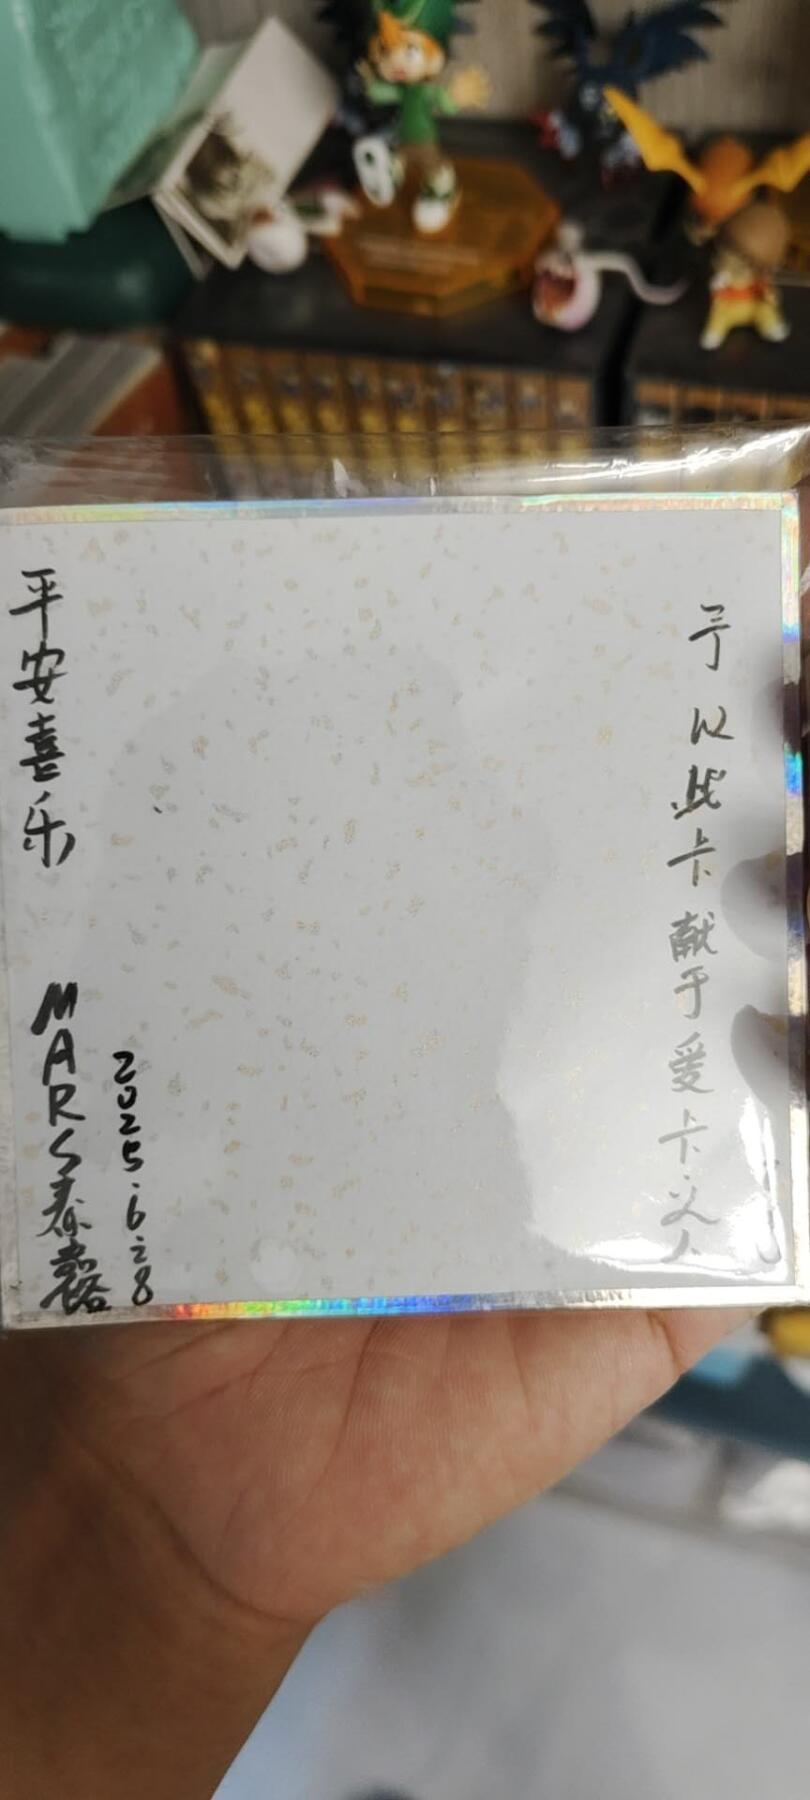 以此卡献于爱卡之人
平安喜乐
MARS春露
2025.6.28